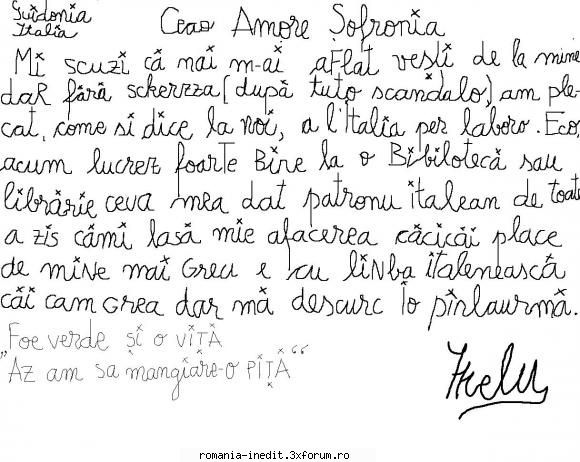 Guidonia
Italia
Ceao Amore Șofronia
Mi scuzi că nai m-ai aflat vești de la mine
daR fără scherzza (după tuto scandalo) am ple-
cat, come si dice la noi, a l'Italia per laboro. Eco,
acum lucrez foarTe Bine la o Bibiliotecă sau
librărie ceva mea dat patronu italean de toate
a zis cămi lasă mie afacerea căcicăi place
de miNe mai Greu e cu liNba italenească
căi cam Grea dar mă descurc io pînlaurmă.
Foe verde și o viȚĂ
„Az am sa mangiare-o PIȚĂ“
romania-inedit.3xforum.ro